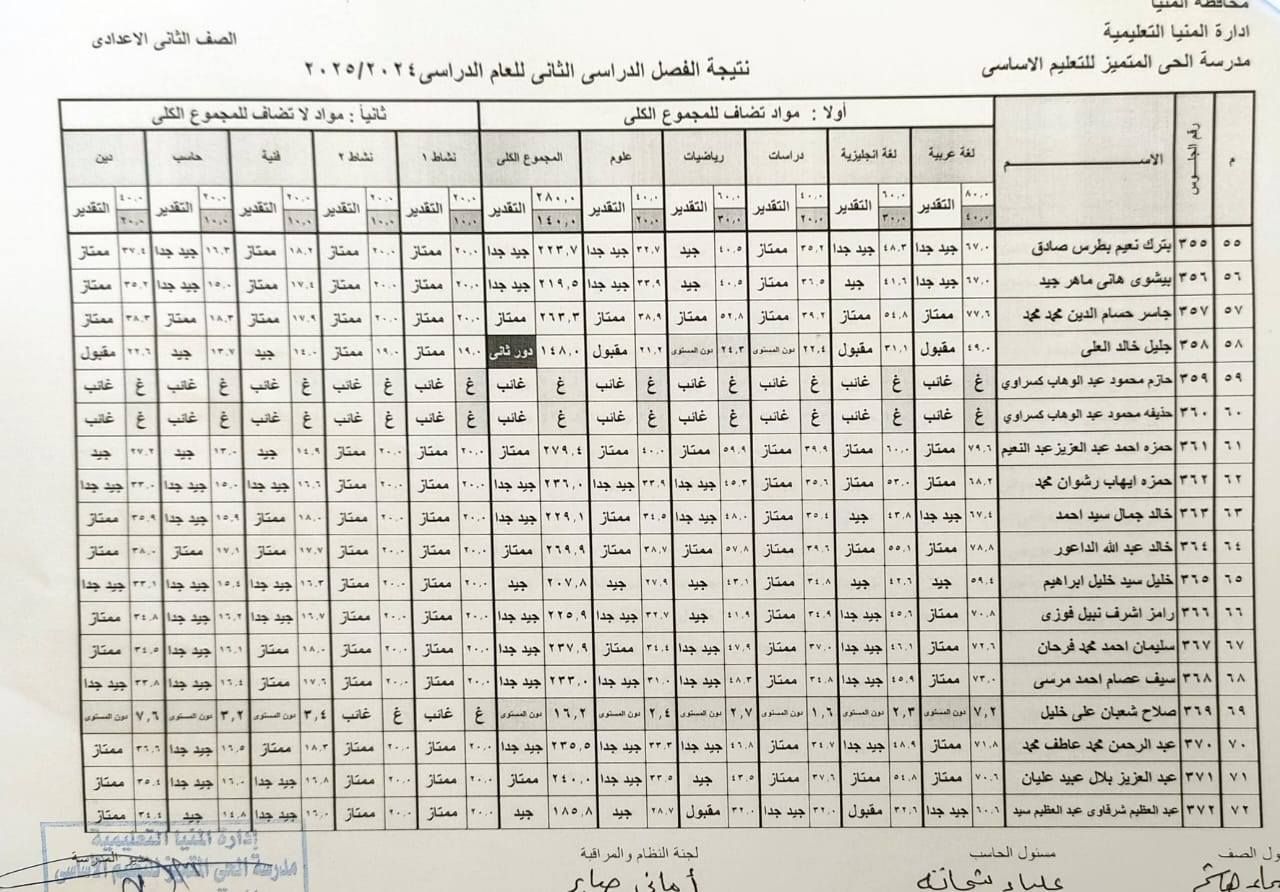 محافظة المنيا
ادارة المنيا التعليمية
مدرسة الحى المتميز للتعليم الاساسى
الصف الثانى الاعدادى
نتيجة الفصل الدراسى الثانى للعام الدراسى ٢٠٢٥/٢٠٢٤
م رقم الجلوس الاســـم أولا : مواد تضاف للمجموع الكلى ثانيأ : مواد لا تضاف للمجموع الكلى
لغة عربية لغة انجليزية دراسات رياضيات علوم المجموع الكلى نشاط ١ نشاط ٢ فنية حاسب دين
٨٠,٠ التقدير ٦٠,٠ التقدير ٤٠,٠ التقدير ٦٠,٠ التقدير ٤٠,٠ التقدير ٢٨٠,٠ التقدير ٢٠,٠ التقدير ٢٠,٠ التقدير ٢٠,٠ التقدير ٢٠,٠ التقدير ٤٠,٠ التقدير
٤٠,٠ ٣٠,٠ ٢٠,٠ ٣٠,٠ ٢٠,٠ ١٤٠,٠ ١٠,٠ ١٠,٠ ١٠,٠ ١٠,٠ ٢٠,٠
٥٥ ٣٥٥ بترك نعيم بطرس صادق ٦٧,٠ جيد جدا ٤٨,٣ جيد جدا ٣٥,٢ ممتاز ٤٠,٥ جيد ٣٢,٧ جيد جدا ٢٢٣,٧ جيد جدا ٢٠,٠ ممتاز ٢٠,٠ ممتاز ١٨,٢ ممتاز ١٦,٣ جيد جدا ٣٧,٤ ممتاز
٥٦ ٣٥٦ بيشوى هانى ماهر جيد ٦٧,٠ جيد جدا ٤١,٦ جيد ٣٦,٥ ممتاز ٤٠,٥ جيد ٣٣,٩ جيد جدا ٢١٩,٥ جيد جدا ٢٠,٠ ممتاز ٢٠,٠ ممتاز ١٧,٤ ممتاز ١٥,٠ جيد جدا ٣٥,٢ ممتاز
٥٧ ٣٥٧ جاسر حسام الدين محمد محمد ٧٧,٦ ممتاز ٥٤,٨ ممتاز ٣٩,٢ ممتاز ٥٢,٨ ممتاز ٣٨,٩ ممتاز ٢٦٣,٣ ممتاز ٢٠,٠ ممتاز ٢٠,٠ ممتاز ١٧,٩ ممتاز ١٨,٣ ممتاز ٣٨,٣ ممتاز
٥٨ ٣٥٨ جليل خالد العلى ٤٩,٠ مقبول ٣١,١ مقبول ٢٢,٤ دون المستوى ٢٤,٣ دون المستوى ٢١,٢ مقبول ١٤٨,٠ دور ثانى ١٩,٠ ممتاز ١٩,٠ ممتاز ١٤,٠ جيد ١٣,٧ جيد ٢٢,٦ مقبول
٥٩ ٣٥٩ حازم محمود عبد الوهاب كسراوي غ غائب غ غائب غ غائب غ غائب غ غائب غ غائب غ غائب غ غائب غ غائب غ غائب غ غائب
٦٠ ٣٦٠ حذيفه محمود عبد الوهاب كسراوي غ غائب غ غائب غ غائب غ غائب غ غائب غ غائب غ غائب غ غائب غ غائب غ غائب غ غائب
٦١ ٣٦١ حمزه احمد عبد العزيز عبد النعيم ٧٩,٦ ممتاز ٦٠,٠ ممتاز ٣٩,٩ ممتاز ٥٩,٩ ممتاز ٤٠,٠ ممتاز ٢٧٩,٤ ممتاز ٢٠,٠ ممتاز ٢٠,٠ ممتاز ١٤,٩ جيد ١٣,٠ جيد ٢٧,٢ جيد
٦٢ ٣٦٢ حمزه ايهاب رشوان محمد ٦٨,٢ ممتاز ٥٣,٠ ممتاز ٣٥,٦ ممتاز ٤٥,٣ جيد جدا ٣٣,٩ جيد جدا ٢٣٦,٠ جيد جدا ٢٠,٠ ممتاز ٢٠,٠ ممتاز ١٦,٦ جيد جدا ١٥,٠ جيد جدا ٣٣,٠ جيد جدا
٦٣ ٣٦٣ خالد جمال سيد احمد ٦٧,٤ جيد جدا ٤٣,٨ جيد ٣٥,٤ ممتاز ٤٨,٠ جيد جدا ٣٤,٥ ممتاز ٢٢٩,١ جيد جدا ٢٠,٠ ممتاز ٢٠,٠ ممتاز ١٨,٠ ممتاز ١٥,٩ جيد جدا ٣٥,٩ ممتاز
٦٤ ٣٦٤ خالد عبد الله الداعور ٧٨,٨ ممتاز ٥٥,١ ممتاز ٣٩,٦ ممتاز ٥٧,٨ ممتاز ٣٨,٧ ممتاز ٢٦٩,٩ ممتاز ٢٠,٠ ممتاز ٢٠,٠ ممتاز ١٧,٧ ممتاز ١٧,١ ممتاز ٣٨,٠ ممتاز
٦٥ ٣٦٥ خليل سيد خليل ابراهيم ٥٩,٤ جيد ٤٢,٦ جيد ٣٤,٨ ممتاز ٤٣,١ جيد ٢٧,٩ جيد ٢٠٧,٨ جيد ٢٠,٠ ممتاز ٢٠,٠ ممتاز ١٦,٣ جيد جدا ١٥,٤ جيد جدا ٣٣,١ جيد جدا
٦٦ ٣٦٦ رامز اشرف نبيل فوزى ٧٠,٨ ممتاز ٤٥,٦ جيد جدا ٣٤,٩ ممتاز ٤١,٩ جيد ٣٢,٧ جيد جدا ٢٢٥,٩ جيد جدا ٢٠,٠ ممتاز ٢٠,٠ ممتاز ١٦,٧ جيد جدا ١٦,٢ جيد جدا ٣٤,٨ ممتاز
٦٧ ٣٦٧ سليمان احمد محمد فرحان ٧٢,٦ ممتاز ٤٦,١ جيد جدا ٣٧,٠ ممتاز ٤٧,٩ جيد جدا ٣٤,٤ ممتاز ٢٣٧,٩ جيد جدا ٢٠,٠ ممتاز ٢٠,٠ ممتاز ١٨,٠ ممتاز ١٦,١ جيد جدا ٣٤,٥ ممتاز
٦٨ ٣٦٨ سيف عصام احمد مرسى ٧٣,٠ ممتاز ٤٥,٩ جيد جدا ٣٤,٨ ممتاز ٤٨,٣ جيد جدا ٣١,٠ جيد جدا ٢٣٣,٠ جيد جدا ٢٠,٠ ممتاز ٢٠,٠ ممتاز ١٧,٦ ممتاز ١٦,٤ جيد جدا ٣٣,٨ جيد جدا
٦٩ ٣٦٩ صلاح شعبان على خليل ٧,٢ دون المستوى ٢,٣ دون المستوى ١,٦ دون المستوى ٢,٧ دون المستوى ٢,٤ دون المستوى ١٦,٢ دون المستوى غ غائب غ غائب ٣,٤ دون المستوى ٣,٢ دون المستوى ٧,٦ دون المستوى
٧٠ ٣٧٠ عبد الرحمن محمد عاطف محمد ٧١,٨ ممتاز ٤٨,٩ جيد جدا ٣٤,٧ ممتاز ٤٦,٨ جيد جدا ٣٣,٣ جيد جدا ٢٣٥,٥ جيد جدا ٢٠,٠ ممتاز ٢٠,٠ ممتاز ١٨,٣ ممتاز ١٦,٥ جيد جدا ٣٦,٦ ممتاز
٧١ ٣٧١ عبد العزيز بلال عبيد عليان ٧٠,٦ ممتاز ٥٤,٨ ممتاز ٣٧,٦ ممتاز ٤٣,٥ جيد ٣٣,٥ جيد جدا ٢٤٠,٠ ممتاز ٢٠,٠ ممتاز ٢٠,٠ ممتاز ١٦,٨ جيد جدا ١٦,٠ جيد جدا ٣٥,٤ ممتاز
٧٢ ٣٧٢ عبد العظيم شرقاوى عبد العظيم سيد ٦٠,٦ جيد جدا ٣٢,٦ مقبول ٣٢,٠ جيد جدا ٣٢,٠ مقبول ٢٨,٧ جيد ١٨٥,٨ جيد ٢٠,٠ ممتاز ٢٠,٠ ممتاز ١٦,٠ جيد جدا ١٤,٨ جيد ٣٤,٤ ممتاز
إدارة المنيا التعليمية
مدرسة الحى المتميز للتعليم الأساسى
الصف مسئول الحاسب لجنة النظام والمراقبة مدير المدرسة
علياء شحاته أمانى صابر